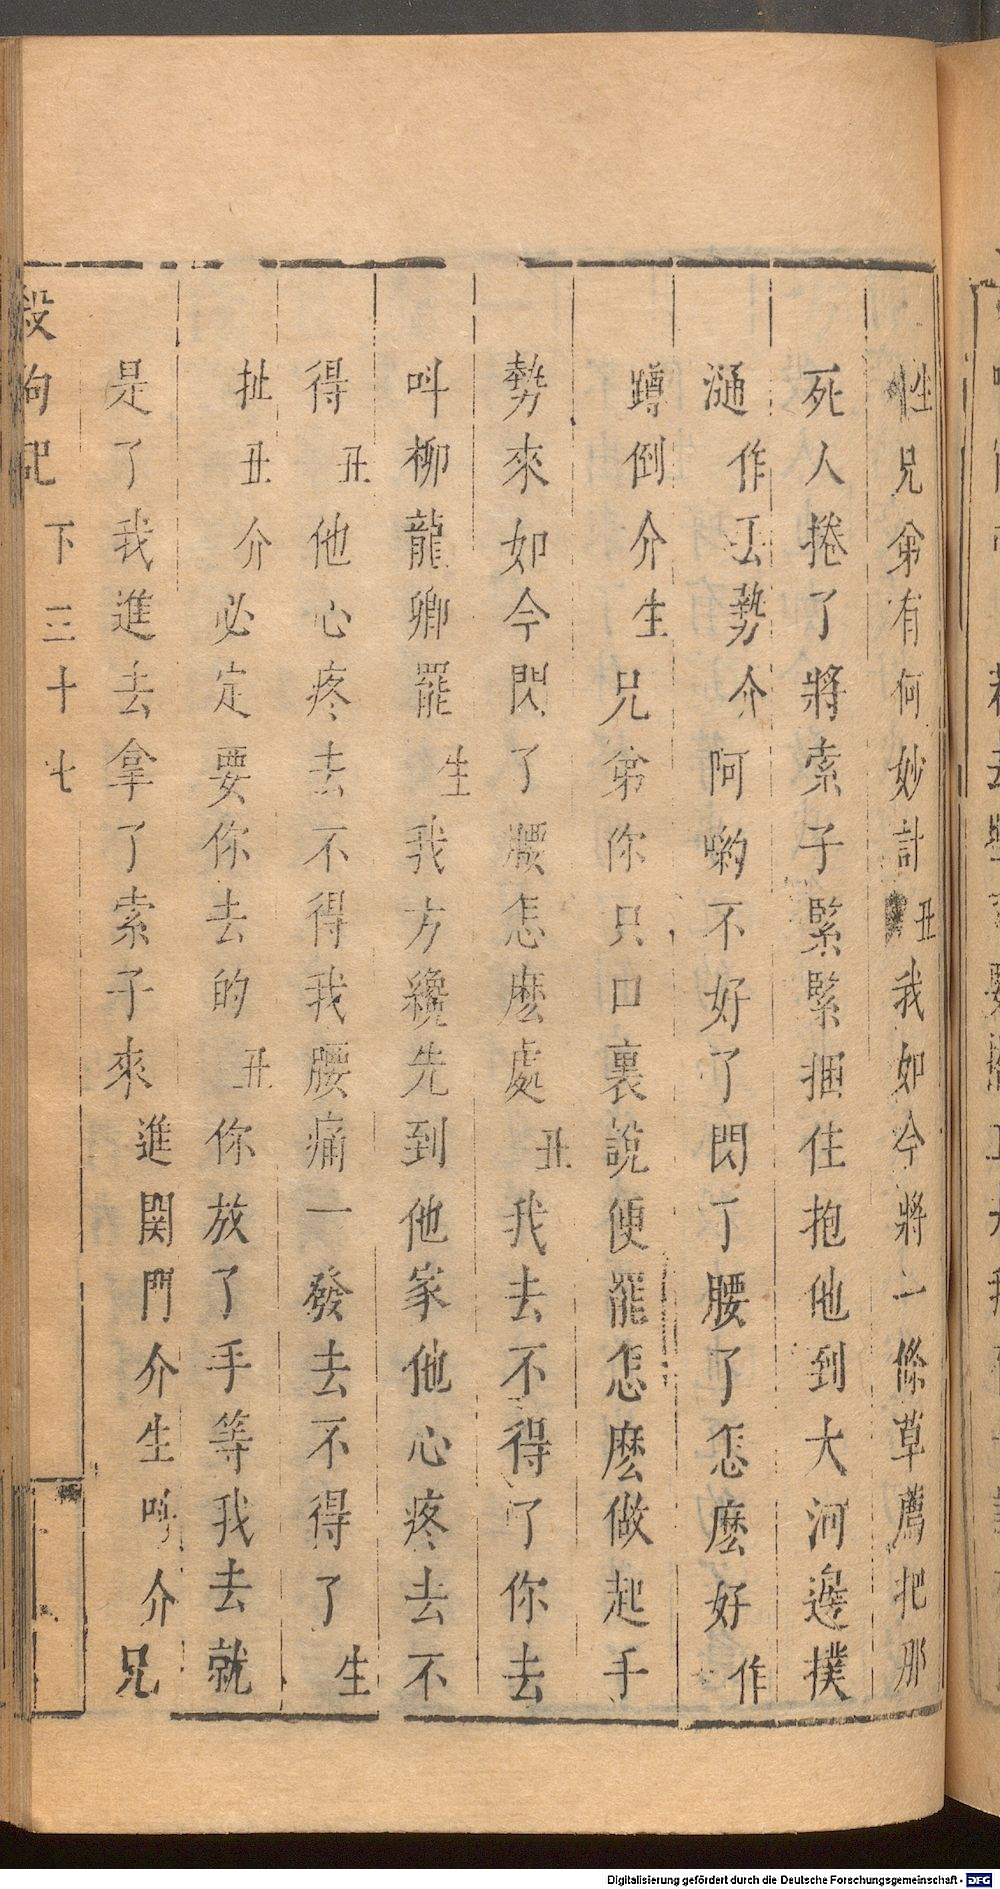 生兄弟有何妙計丑我如今將一條草薦把那
死人捲了將索子緊緊捆住抱他到大河邊撲
通作丢勢介阿喲不好了閃了腰了怎麽好作
蹲倒介生兄弟你只口裏說便罷怎麽做起手
勢來如今閃了腰怎麽處丑我去不得了你去
呌柳龍卿罷生我方纔先到他家他心疼去不
得丑他心疼去不得我腰痛一發去不得了生
扯丑介必定要你去的丑你放了手等我去就
是了我進去拿了索子來進関門介生呌介兄
殺狗記
下
三十七
Digitalisierung gefördert durch die Deutsche Forschungsgemeinschaft - DFG